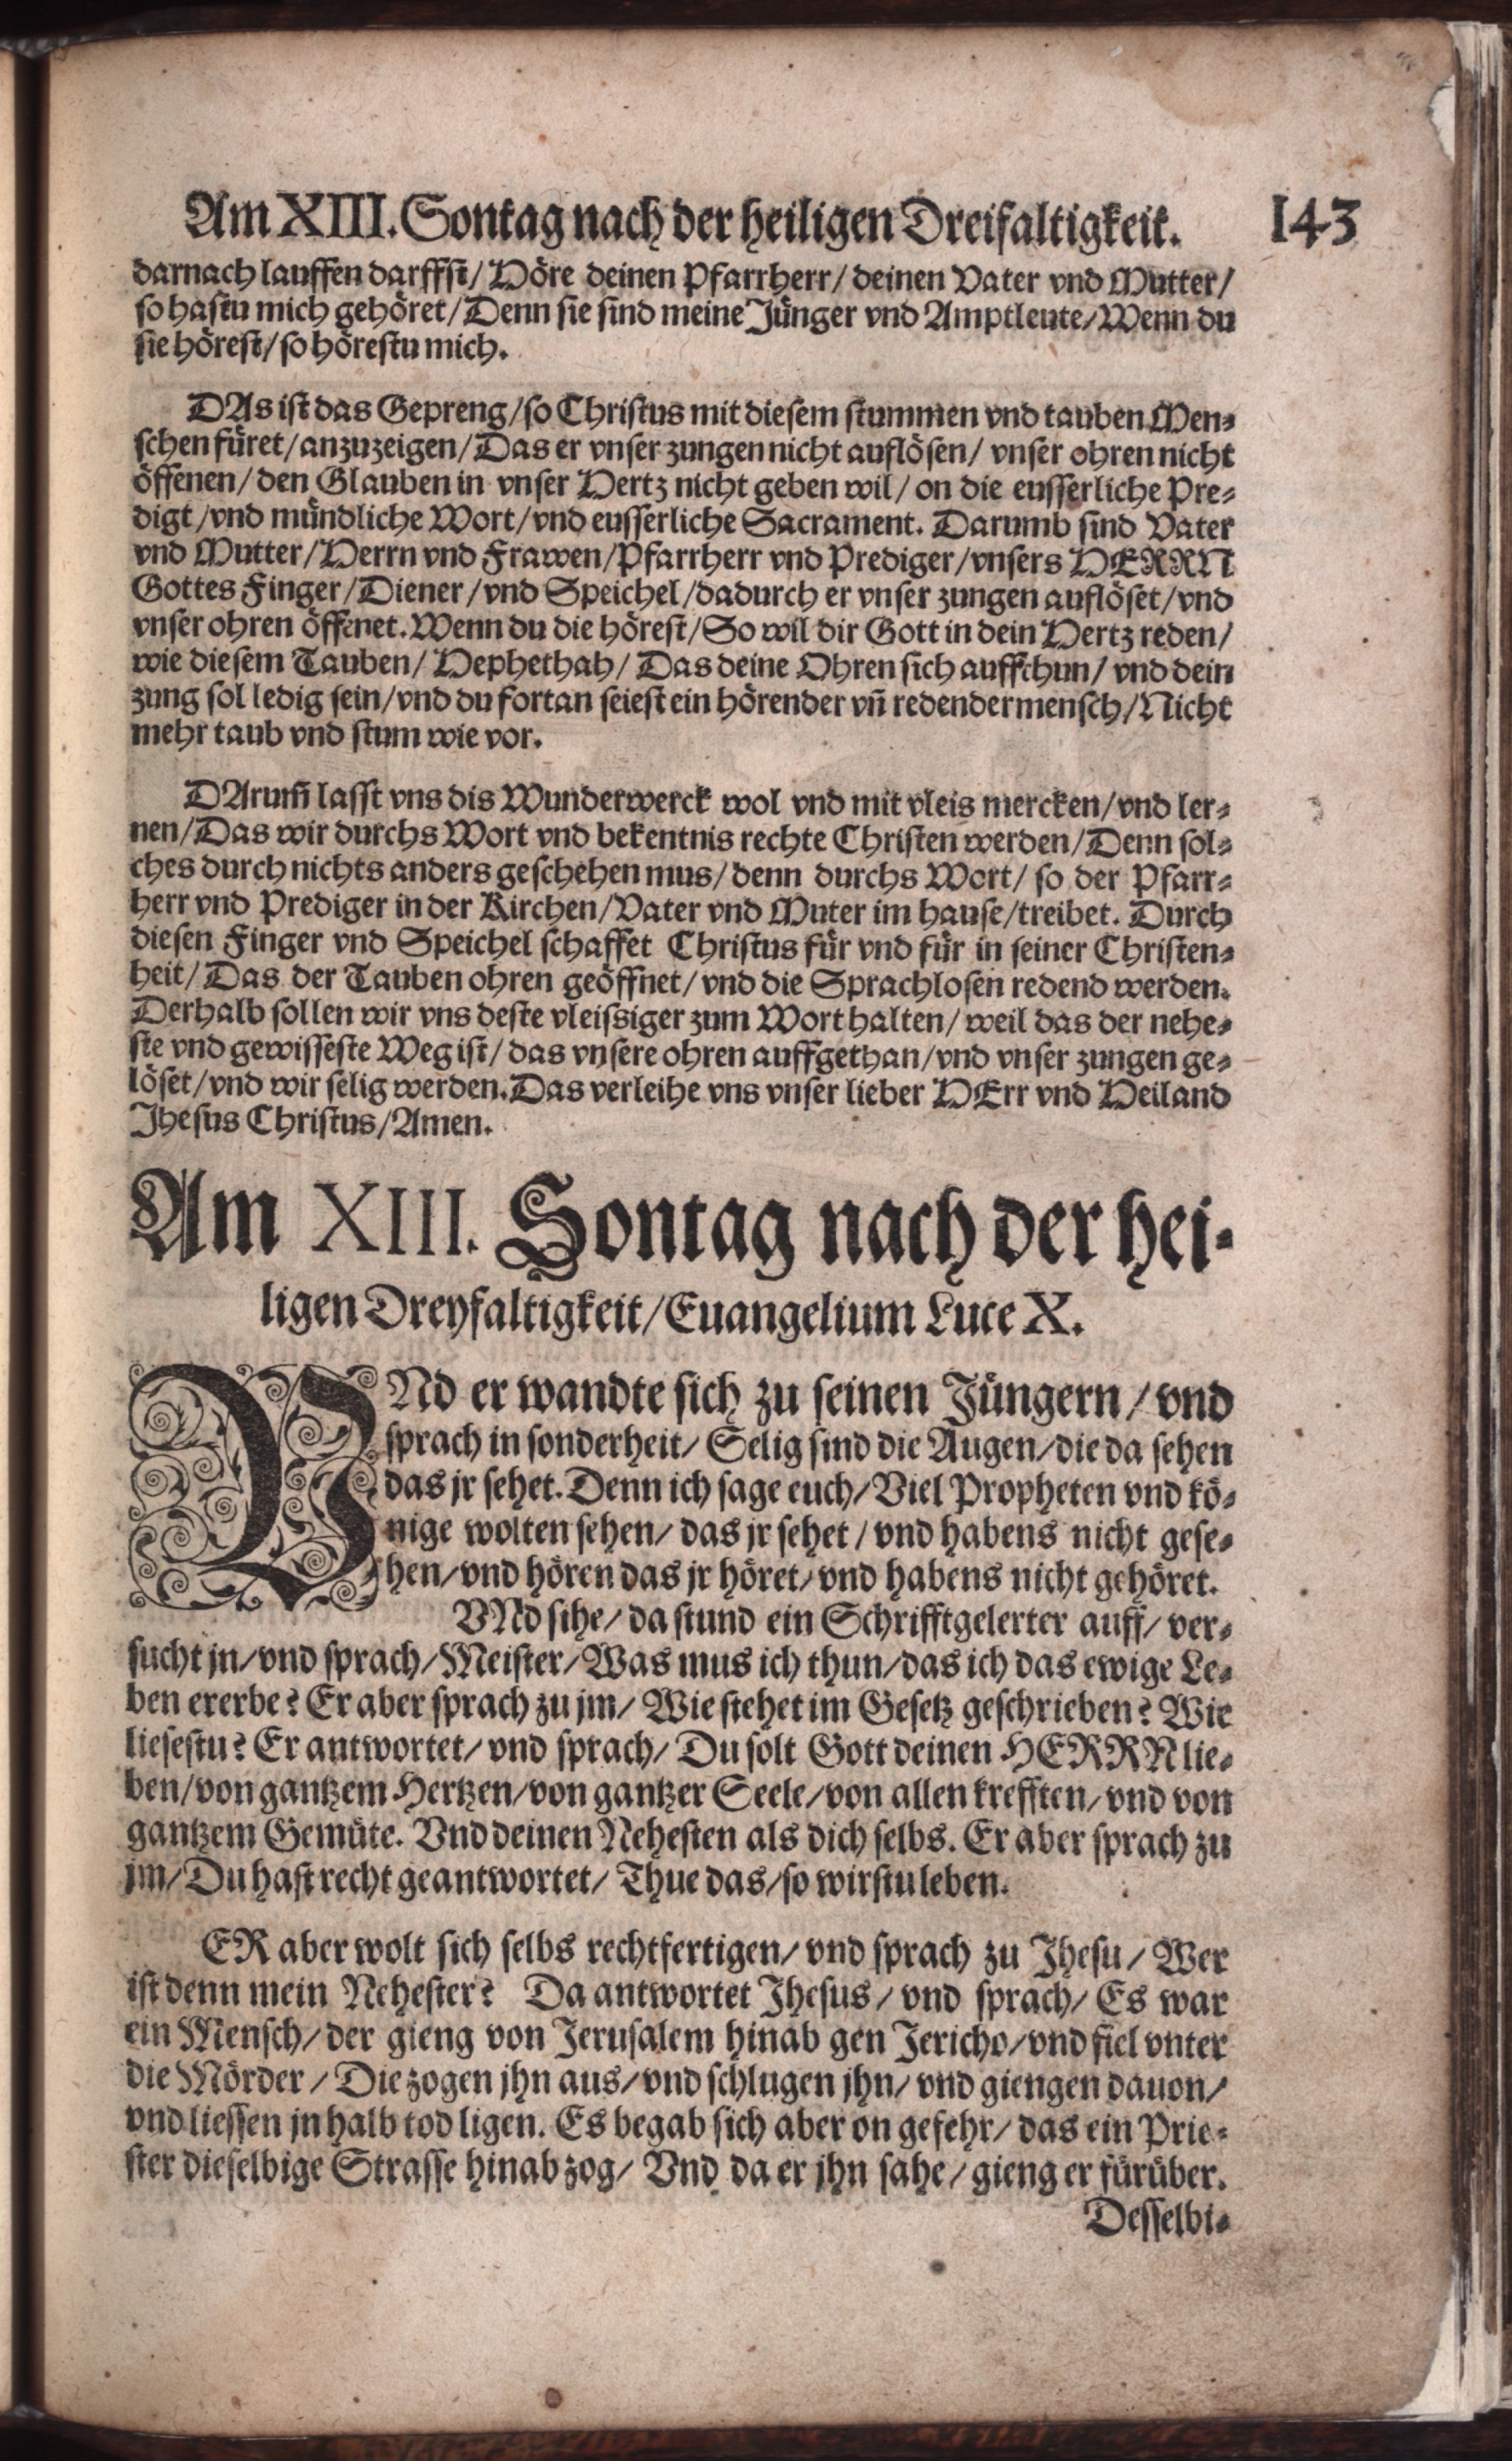 Am XIII. Sontag nach der heiligen Dreifaltigkeit. 143
darnach lauffen darffst/ Höre deinen Pfarrherr/ deinen Vater vnd Mutter/
so hastu mich gehöret/ Denn sie sind meine Jünger vnd Amptleute/ Wenn du
sie hörest/ so hörestu mich.
DAs ist das Gepreng/ so Christus mit diesem stummen vnd tauben Men⸗
schen füret/ anzuzeigen/ Das er vnser zungen nicht auflösen/ vnser ohren nicht
öffenen/ den Glauben in vnser Hertz nicht geben wil/ on die eusserliche Pre⸗
digt/ vnd mündliche Wort/ vnd eusserliche Sacrament. Darumb sind Vater
vnd Mutter/ Herrn vnd Frawen/ Pfarrherr vnd Prediger/ vnsers HERRN
Gottes Finger/ Diener/ vnd Speichel/ dadurch er vnser zungen auflöset/ vnd
vnser ohren öffenet. Wenn du die hörest/ So wil dir Gott in dein Hertz reden/
wie diesem Tauben/ Hephethah/ Das deine Ohren sich auffthun/ vnd dein
zung sol ledig sein/ vnd du fortan seiest ein hörender vñ redender mensch/ Nicht
mehr taub vnd stum wie vor.
DArum̃ lasst vns dis Wunderwerck wol vnd mit vleis mercken/ vnd ler⸗
nen/ Das wir durchs Wort vnd bekentnis rechte Christen werden/ Denn sol⸗
ches durch nichts anders geschehen mus/ denn durchs Wort/ so der Pfarr⸗
herr vnd Prediger in der Kirchen/ Vater vnd Muter im hause/ treibet. Durch
diesen Finger vnd Speichel schaffet Christus für vnd für in seiner Christen⸗
heit/ Das der Tauben ohren geöffnet/ vnd die Sprachlosen redend werden.
Derhalb sollen wir vns deste vleissiger zum Wort halten/ weil das der nehe⸗
ste vnd gewisseste Weg ist/ das vnsere ohren auffgethan/ vnd vnser zungen ge⸗
löset/ vnd wir selig werden. Das verleihe vns vnser lieber HErr vnd Heiland
Jhesus Christus/ Amen.
Am XIII. Sontag nach der hei⸗
ligen Dreyfaltigkeit/ Euangelium Luce X.
VNd er wandte sich zu seinen Jüngern/ vnd
sprach in sonderheit/ Selig sind die Augen/ die da sehen
das jr sehet. Denn ich sage euch/ Viel Propheten vnd kö⸗
nige wolten sehen/ das jr sehet/ vnd habens nicht gese⸗
hen/ vnd hören das jr höret/ vnd habens nicht gehöret.
VNd sihe/ da stund ein Schrifftgelerter auff/ ver⸗
sucht jn/ vnd sprach/ Meister/ Was mus ich thun/ das ich das ewige Le⸗
ben ererbe? Er aber sprach zu jm/ Wie stehet im Gesetz geschrieben? Wie
liesestu? Er antwortet/ vnd sprach/ Du solt Gott deinen HERRN lie⸗
ben/ von gantzem Hertzen/ von gantzer Seele/ von allen krefften/ vnd von
gantzem Gemüte. Vnd deinen Nehesten als dich selbs. Er aber sprach zu
jm/ Du hast recht geantwortet/ Thue das/ so wirstu leben.
ER aber wolt sich selbs rechtfertigen/ vnd sprach zu Jhesu/ Wer
ist denn mein Nehester? Da antwortet Jhesus/ vnd sprach/ Es war
ein Mensch/ der gieng von Jerusalem hinab gen Jericho/ vnd fiel vnter
die Mörder/ Die zogen jhn aus/ vnd schlugen jhn/ vnd giengen dauon/
vnd liessen jn halb tod ligen. Es begab sich aber on gefehr/ das ein Prie⸗
ster dieselbige Strasse hinab zog/ Vnd da er jhn sahe/ gieng er fürüber.
Desselbi⸗